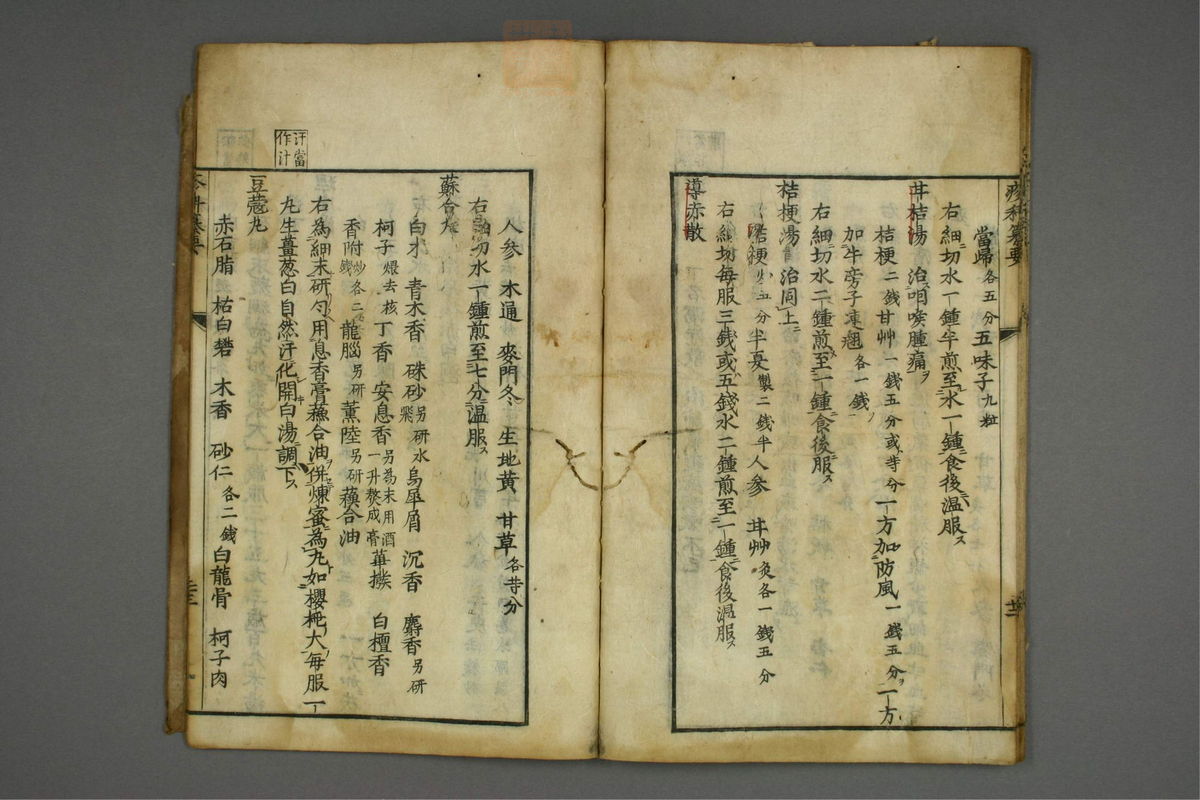 痘科纂要
當歸各五分五味子九粒
右細切水一鍾半煎至一鍾食後温服ス
甘桔湯治咽喉腫痛ヲ
桔梗二錢甘艸一錢五分或等分一方加防風一錢五分一方
加牛旁子凍翹各一錢
右細切水二鍾煎至一鍾食後服ス
桔梗湯治同上
桔梗 五分半夏製二錢半人參 甘艸炙各一錢五分
右細切每服三錢或五錢水二鍾煎至一鍾食後温服ス
導赤散
人參 木通 麥門冬 生地黃 甘草各等分
右細切水一鍾煎至七分温服ス
蘇合丸
白朮 青木香 硃砂另研水飛 烏犀屑 沉香 麝香另研
柯子煨去核 丁香 安息香另為末用酒一升熬成膏 蓽撥 白檀香
香附炒各二錢 龍腦另研 薰陸另研 蘓合油
右為細末研勻用息香膏蘓合油併煉蜜為丸如櫻桃大每服一
丸生薑葱白自然汗化開白湯調下ス
汗當作汁
豆蔻丸
赤石脂 枯白礬 木香 砂仁各二錢 白龍骨 柯子肉